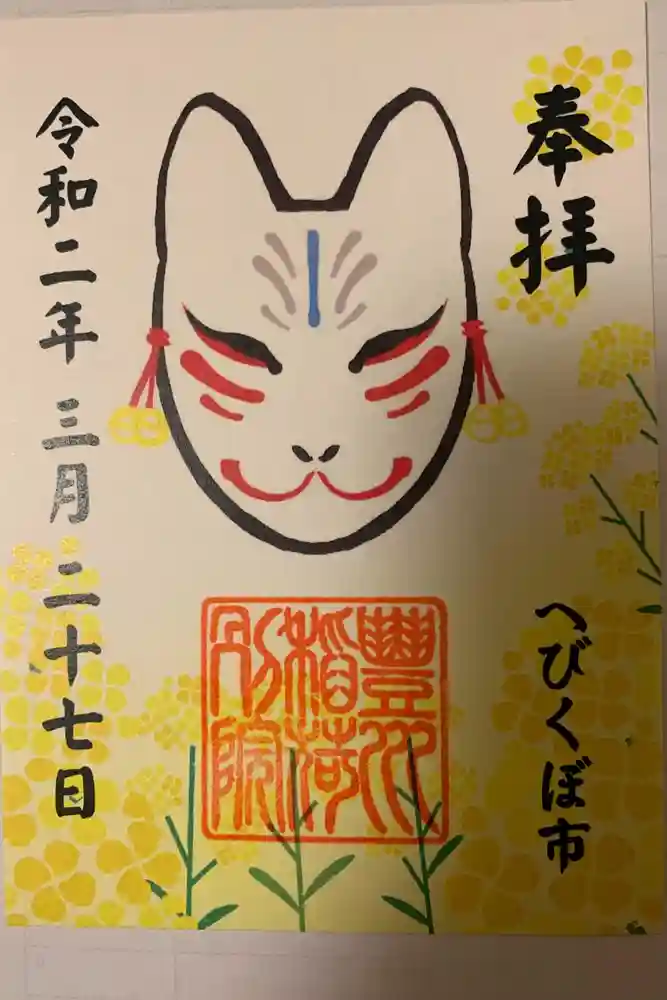 奉拝
へびくぼ市
豐川
稲荷
別院
令和二年 三月 二十七日